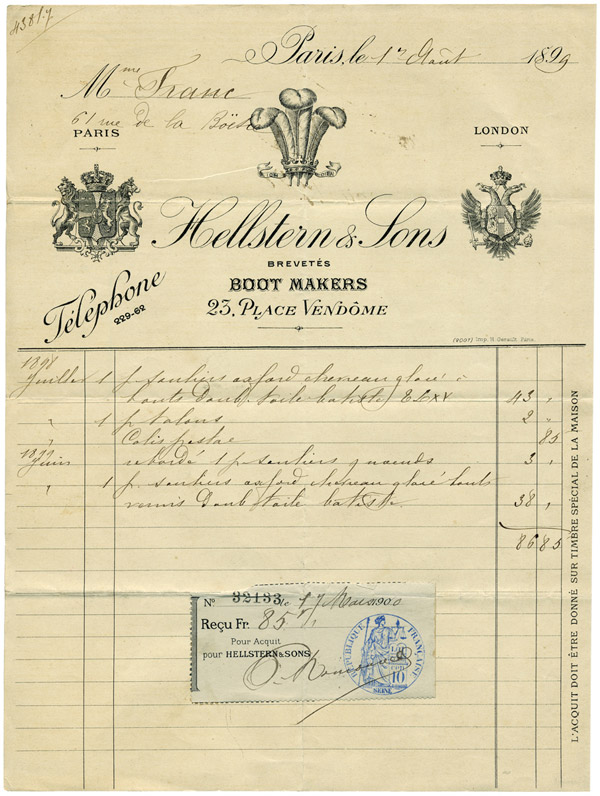 43817
Paris, le 1er Août 1899
Mme Franc
61 rue de la Boëtie
PARIS
LONDON
ICH DIEN
Hellstern & Sons
BREVETÉS
BOOT MAKERS
23, PLACE VENDÔME
Téléphone
229-62
Imp. H. Genault. Paris.
1898
Juillet 1 p. souliers oxford chevreau glacé à
bouts Doub. toile batiste 82 XV 43 "
" 1 p. talons 2 "
" Colis postal 85
1899
Juin rebordé 1 p. souliers 3 "
" 1 p. souliers oxford chevreau glacé bouts
vernis Doub toile batiste. 38 "
86 85
L'ACQUIT DOIT ÊTRE DONNÉ SUR TIMBRE SPÉCIAL DE LA MAISON
No 32133 le 17 Mars 1900
Reçu Fr. 85
Pour Acquit
pour HELLSTERN & SONS
RÉPUBLIQUE FRANÇAISE
10
SEINE